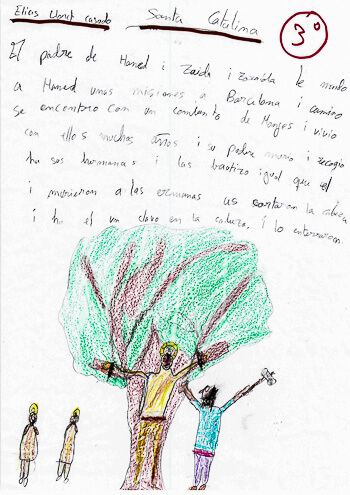 Elias Lloret casado Santa Catalina 3º
El padre de Hamed i Zaida i zoraida le mando
a Hamed unas misiones a Barcelona i camino
se encontro con un combento de Monges i vivio
con ellos muchos años i su padre murio i recogio
ha sus hermanas i las bautizo igual que el
i murieron a las ermanas les cortaron la cabeza
i ha el un clavo en la cabeza, i lo enterraron